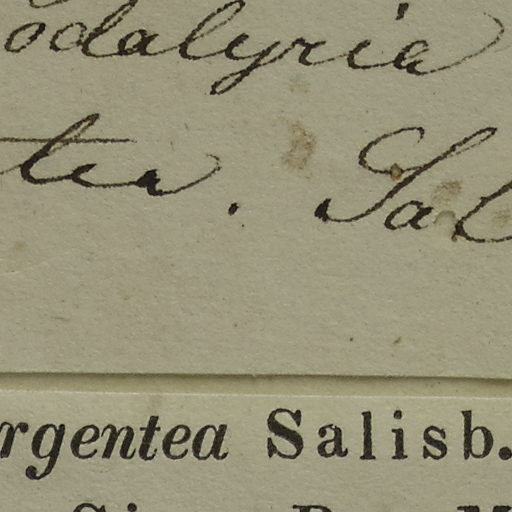 odalyria
tea. Sal
rgentea Salisb.